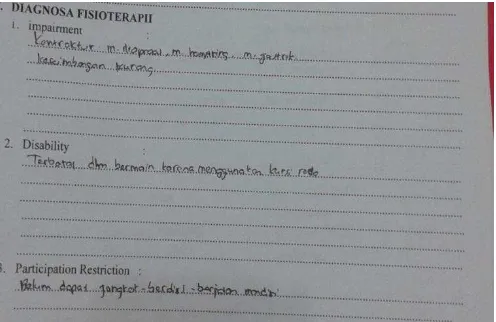 . DIAGNOSA FISIOTERAPII
1. impairment :
Kontraktur m. iliopsoas, m. hamstring, m. gastrok
keseimbangan kurang
2. Disability :
Terbatas dlm bermain karena menggunakan kursi roda
3. Participation Restriction :
Belum dapat jongkok-berdiri-berjalan mandiri